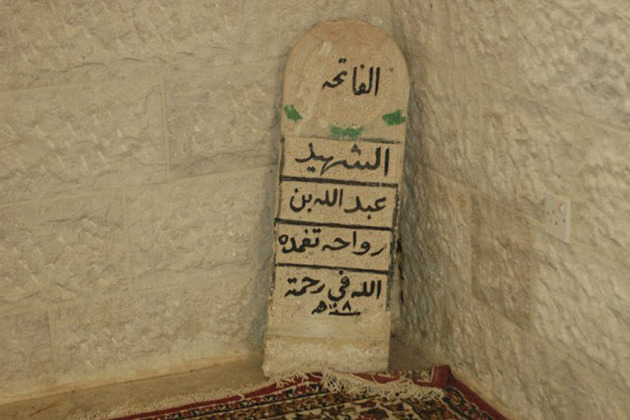 الفاتحه
الشهيد
عبد الله بن
رواحه تغمده
الله في رحمة
٨هـ